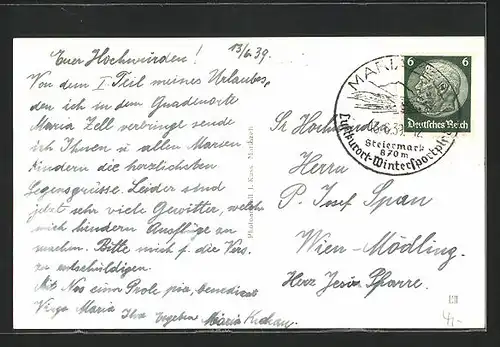 Euer Hochwürden! 13/6.39.
Von dem I. Teil meines Urlaubes,
den ich in dem Gnadenorte
Maria Zell verbringe sende
ich Ihnen u allen Marien
kindern die herzlichsten
Segensgrüsse. Leider sind
jetzt sehr viele Gewitter, welche
mich hindern Ausflüge zu
machen. Bitte mich f. die Vers.
zu entschuldigen.
Mit Nos cum Prole pia, benedicat
Virgo Maria Ihre
Maria
MARIA
13.6.39
Steiermark
870 m
Luftkurort-Wintersportplatz
6 6
Deutsches Reich
Sr Hochwürden
Herrn
P. Josef Span
Wien-Mödling.
Herz Jesu Pfarre.
4,-